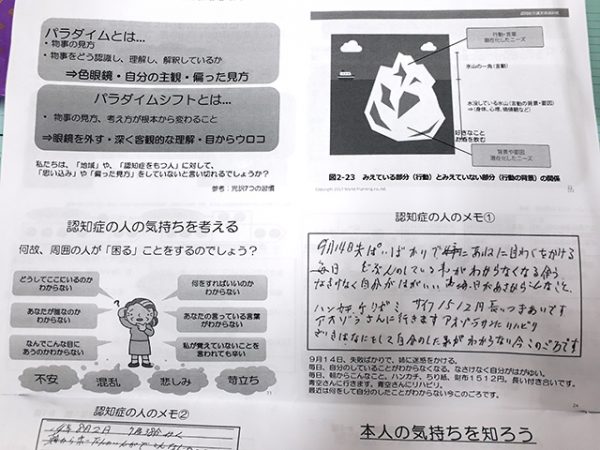 パラダイムとは...
・物事の見方
・物事をどう認識し、理解し、解釈しているか
⇒色眼鏡・自分の主観・偏った見方
パラダイムシフトとは...
・物事の見方、考え方が根本から変わること
⇒眼鏡を外す・深く客観的な理解・目からウロコ
私たちは、「地域」や、「認知症をもつ人」に対して、
「思い込み」や「偏った見方」をしていないと言い切れるでしょうか?
参考:光沢7つの習慣
行動・言葉
顕在化したニーズ
氷山の一角(言動)
水没している氷山(言動の背景・要因)
⇒(身体、心理、価値観など)
好きなこと
背景や要因
潜在化したニーズ
図2-23 みえている部分(行動)とみえていない部分(行動の背景)の関係
認知症の人の気持ちを考える
何故、周囲の人が「困る」ことをするのでしょう?
どうしてここにいるのか
わからない
あなたが誰なのか
わからない
なんでこんな目に
あうのかわからない
何をすればいいのか
わからない
あなたの言っている言葉
がわからない
私が覚えていないことを
言われても辛い
不安
混乱
悲しみ
苛立ち
認知症の人のメモ①
9月14日失ぱいばかりで姉にめいわくをかける
毎日
ハンカチ、チリガミ サイフ1512円長いつきあいです
アオゾラさんに行きます アオゾラサンにリハビリ
9月14日、失敗ばかりで、姉に迷惑をかける。
毎日、自分のしていることがわからなくなる、なさけなく自分がはがゆい。
毎日、朝からこんなこと。ハンカチ、ちり紙、財布1512円。長い付き合いです。
青空さんに行きます。青空さんにリハビリ。
最近は何をして自分のしたことがわからない今このごろです。
24
認知症の人のメモ②
本人の気持ちを知ろう